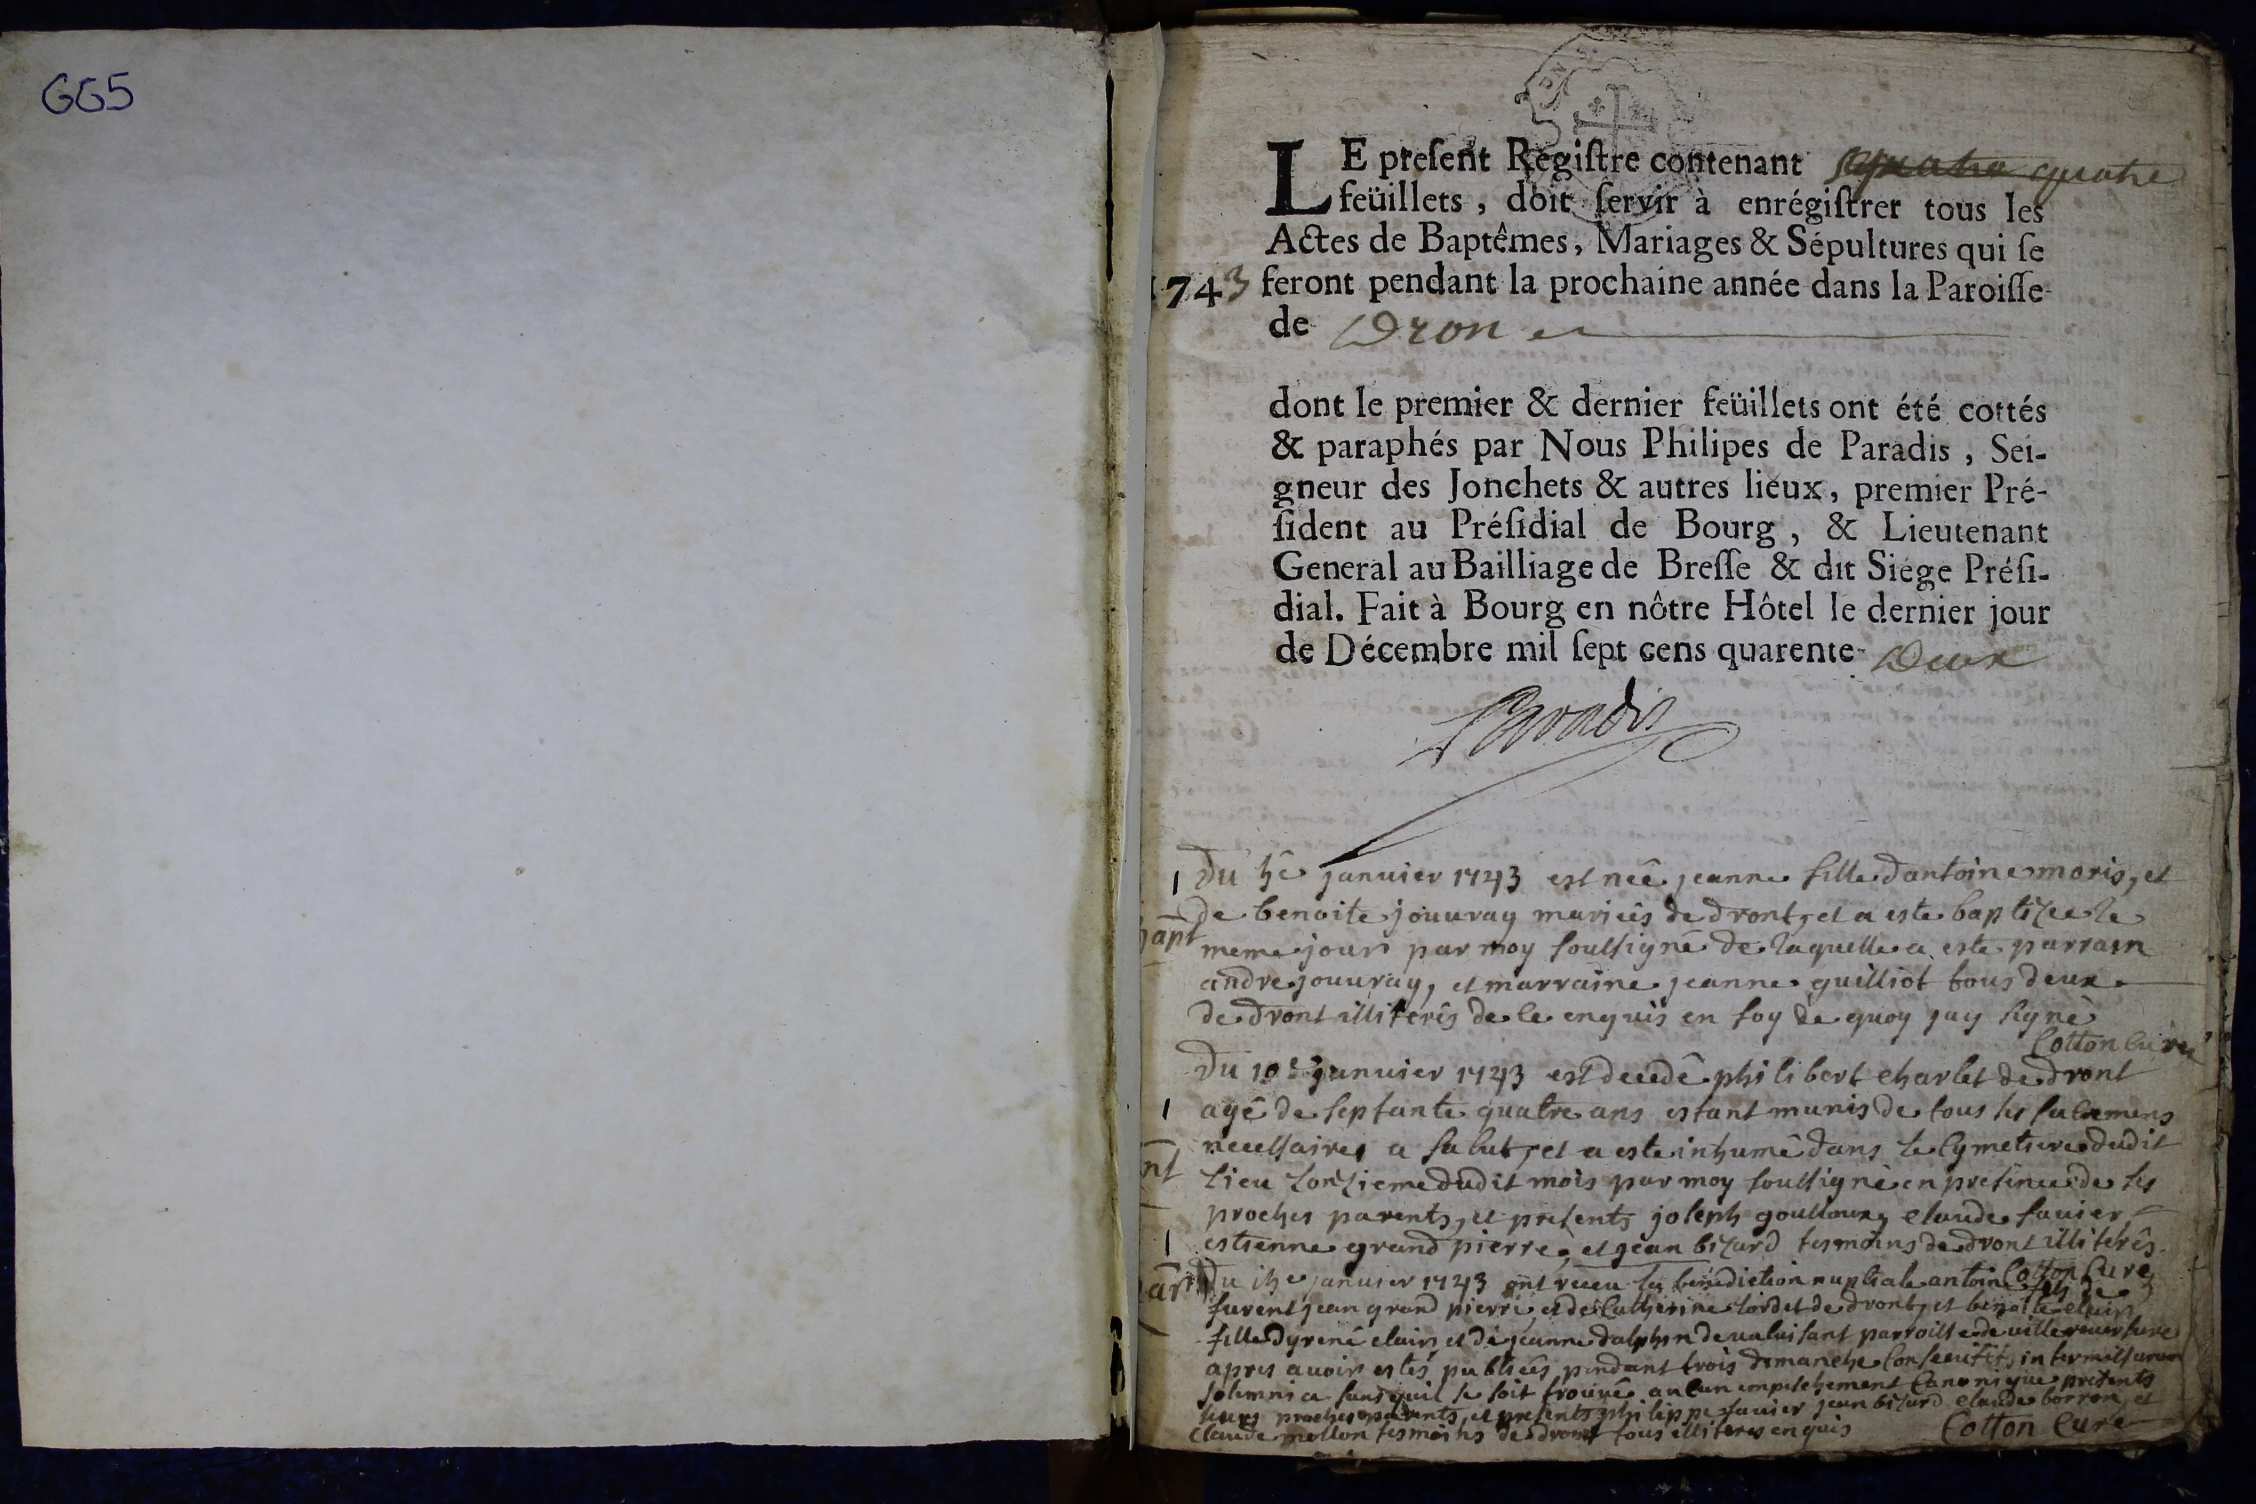 GG5
LE preſent Regiſtre contenant quatre
feüillets, doit ſervir à enrégiſtrer tous les
Actes de Baptêmes, Mariages & Sépultures qui ſe
1743 feront pendant la prochaine année dans la Paroiſſe
de Dron
dont le premier & dernier feüillets ont été cottés
& paraphés par Nous Philipes de Paradis, Sei-
gneur des Jonchets & autres lieux, premier Pré-
ſident au Préſidial de Bourg, & Lieutenant
General au Bailliage de Breſſe & dit Siége Préſi-
dial. Fait à Bourg en nôtre Hôtel le dernier jour
de Décembre mil ſept cens quarente Deux
Paradis
1 Du janvier 1743 est neê jeanne fille dantoine moris, et
de benoite jouvray mariês de dront, et a este baptizee le
bapt meme jour par moy soussignê de laquelle a este parrain
andre jouvray, et marraine jeanne guilliot tous deux
de dront illiterês de ce enquis en foy de quoy jay signè
Cotton Curé
Du 10e janvier 1743 est decedê philibert charlet de dront
1 agê de septante quatre ans estant munis de tous les sacremens
necessaires a salut, et a este inhumê dans le cymetiere dudit
lieu lonzieme dudit mois par moy soussignè en presence de ses
proches parents, et presents joseph goulloux, claude favier,
1 estienne grand pierre, et jean bizard tesmoins de dront illiterês
Cotton Cure
Du janvier 1743 ont receu la benediction nuptiale antoine fils de
furent jean grand pierre, et de Catherine tordet de dront, et benoite clair
fille dyrenê clair et de jeanne dalphin de valuisant parroisse de villereversure
apres avoir estês publiêes pendant trois dimanche consecutifs inter missarum
solemnia sans quil se soit trouvê aucun empeschement Canonique presents
leurs proches parents, et presents philippe favier jean bizard claude borron, et
claude mollon tesmoins de dront tous illiteres enquis Cotton Cure